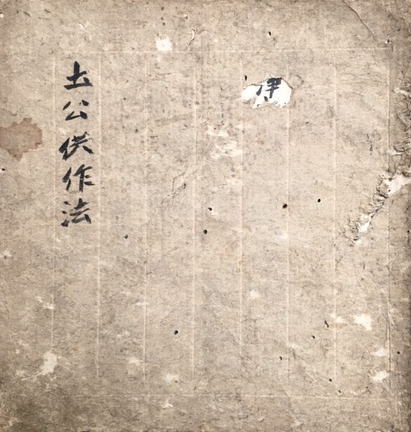 土公供作法